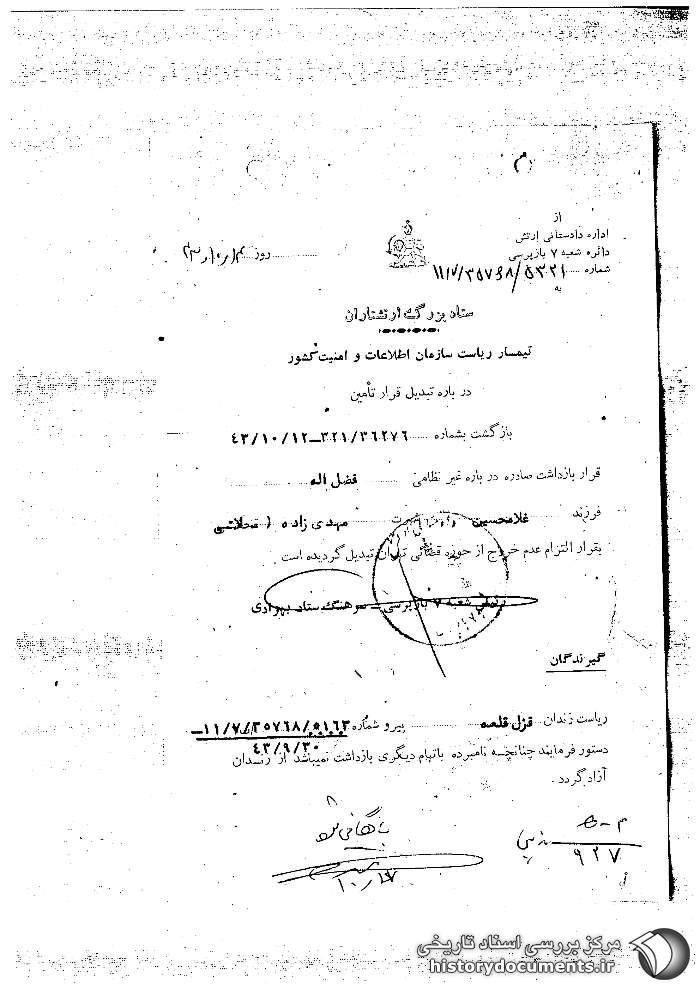 از
اداره دادستانی ارتش
دائره شعبه ۷ بازپرسی
شماره ۵۳۲۱/۳۵۷۶۸/۱۱/۷
به
روز
ستاد بزرگ ارتشتاران
تیمسار ریاست سازمان اطلاعات و امنیت کشور
در باره تبدیل قرار تأمین
بازگشت بشماره ۳۲۱/۳۶۲۷۶–۴۳/۱۰/۱۲
قرار بازداشت صادره در باره غیر نظامی فضل اله
فرزند غلامحسین شهرت مهدی زاده (محلاتی
بقرار التزام عدم خروج از حوزه قضائی تهران تبدیل گردیده است
رئیس شعبه ۷ بازپرسی – سرهنگ ستاد بهزادی
گیرندگان
ریاست زندان قزل قلعه پیرو شماره ۵۱۶۳/۳۵۷۶۸/۱۱/۷–
۴۳/۹/۳۰
دستور فرمایند چنانچه نامبرده باتهام دیگری بازداشت نمیباشد از زندان
آزاد گردد.
۹۲۷
۱۰/۱۷
مرکز بررسی اسناد تاریخی
historydocuments.ir